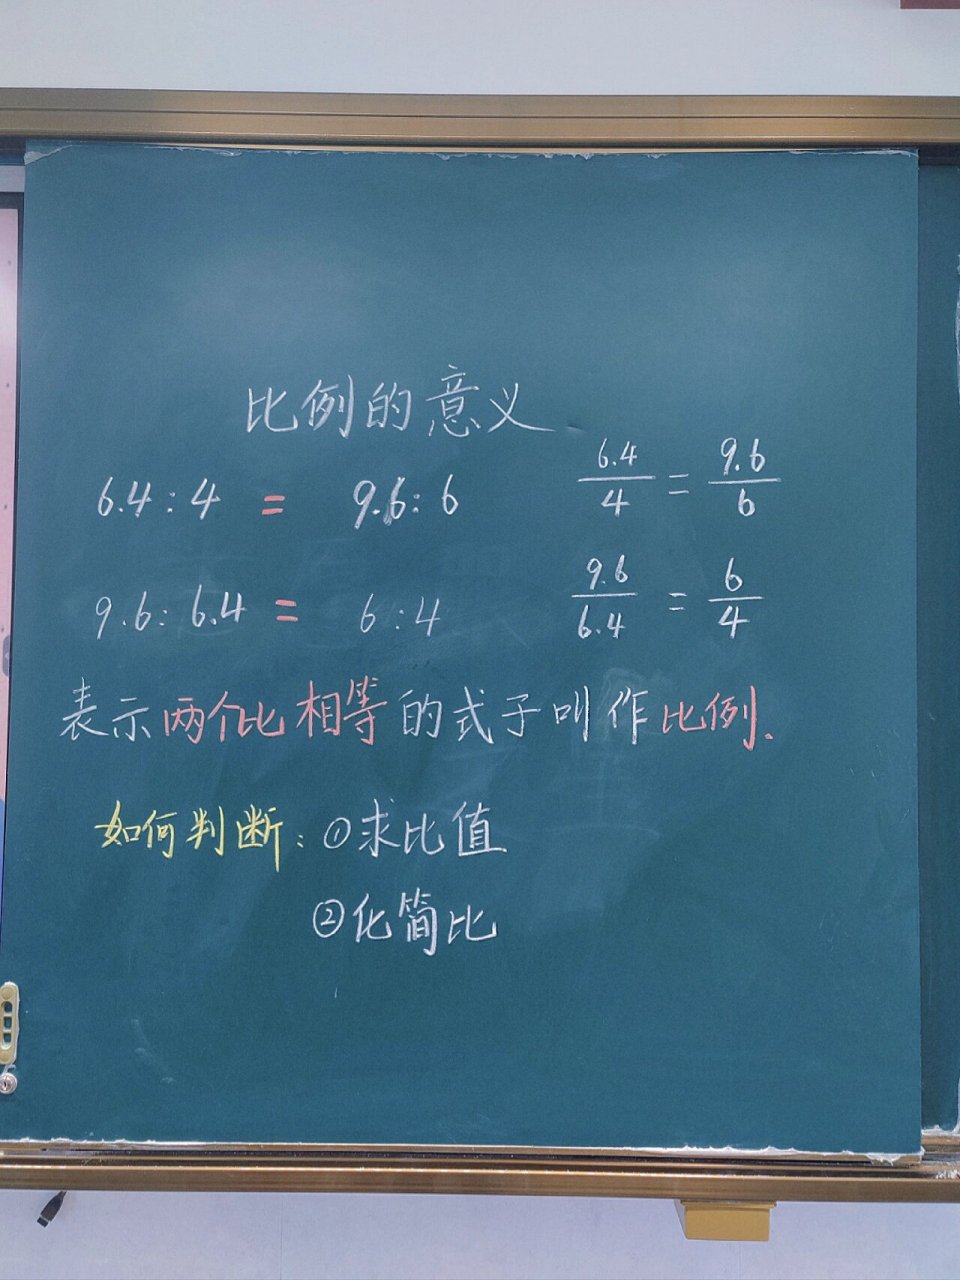 比例的意义
6.4:4 = 9.6:6
6.4/4 = 9.6/6
9.6:6.4 = 6:4
9.6/6.4 = 6/4
表示两个比相等的式子叫作比例.
如何判断：①求比值
②化简比